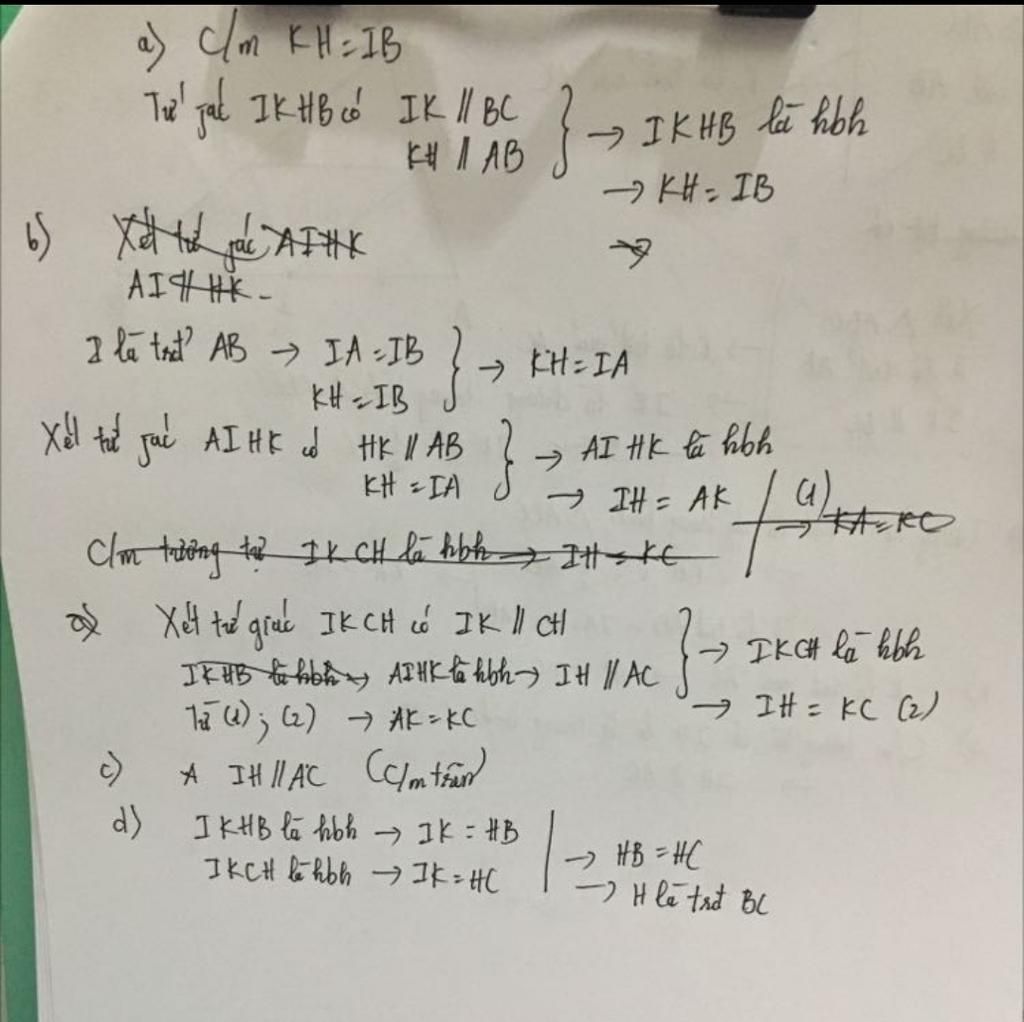 a) C/m KH = IB
Tứ giác IKHB có IK // BC
KH // AB } → IKHB là hbh
→ KH = IB
b) Xét tứ giác AIHK
AI // HK
I là trđ AB → IA = IB
KH = IB } → KH = IA
Xét tứ giác AIHK có HK // AB
KH = IA } → AIHK là hbh
→ IH = AK (1)
→ KA = KC
C/m tương tự IKCH là hbh → IH = KC
Xét tứ giác IKCH có IK // CH
IKHB là hbh → AIHK là hbh → IH // AC } → IKCH là hbh
→ IH = KC (2)
Từ (1); (2) → AK = KC
c) IH // AC (C/m trên)
d) IKHB là hbh → IK = HB
IKCH là hbh → IK = HC
→ HB = HC
→ H là trđ BC